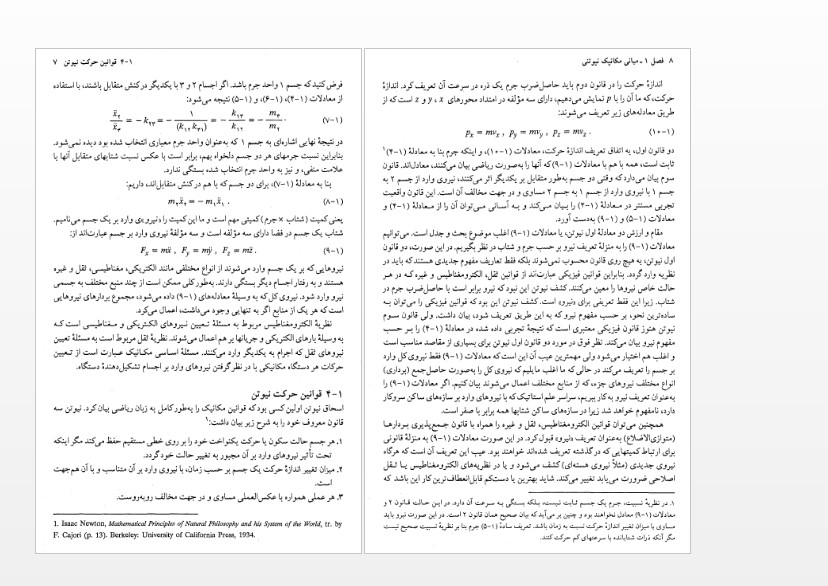 ۱-۴ قوانین حرکت نیوتن ۷
فرض کنید که جسم ۱ واحد جرم باشد. اگر اجسام ۲ و ۳ با یکدیگر درکنش متقابل باشند، با استفاده
از معادلات (۱-۴)، (۱-۶)، و (۱-۵) نتیجه می‌شود:
ẍ₂/ẍ₃ = − k₂₃ = − ۱/(k₁₂ k₃₁) = − k₁₃/k₁₂ = − m₃/m₂ (۱-۷)
در نتیجهٔ نهایی اشاره‌ای به جسم ۱ که به‌عنوان واحد جرم معیاری انتخاب شده بود دیده نمی‌شود.
بنابراین نسبت جرمهای هر دو جسم دلخواه بهم، برابر است با عکس نسبت شتابهای متقابل آنها با
علامت منفی، و نیز به واحد جرم انتخاب شده بستگی ندارد.
بنا به معادلهٔ (۱-۷)، برای دو جسم که با هم در کنش متقابل‌اند، داریم:
m₂ẍ₂ = − m₁ẍ₁ . (۱-۸)
یعنی کمیت (شتاب × جرم) کمیتی مهم است و ما این کمیت را «نیرو»ی وارد بر یک جسم می‌نامیم.
شتاب یک جسم در فضا دارای سه مؤلفه است و سه مؤلفهٔ نیروی وارد بر جسم عبارت‌اند از:
Fₓ = mẍ , F_y = mÿ , F_z = mz̈ . (۱-۹)
نیروهایی که بر یک جسم وارد می‌شوند از انواع مختلفی مانند الکتریکی، مغناطیسی، ثقل و غیره
هستند و به رفتار اجسام دیگر بستگی دارند. به‌طور کلی ممکن است از چند منبع مختلف به جسمی
نیرو وارد شود. نیروی کل که به وسیلهٔ معادله‌های (۱-۹) داده می‌شود، مجموع بردارهای نیروهایی
است که هر یک از منابع اگر به تنهایی وجود می‌داشت، اعمال می‌کرد.
نظریهٔ الکترومغناطیس مربوط به مسئلهٔ تعیین نیروهای الکتریکی و مغناطیسی است که
به وسیلهٔ بارهای الکتریکی و جریانها بر هم اعمال می‌شوند. نظریهٔ ثقل مربوط است به مسئلهٔ تعیین
نیروهای ثقل که اجرام به یکدیگر وارد می‌کنند. مسئلهٔ اساسی مکانیک عبارت است از تعیین
حرکات هر دستگاه مکانیکی با در نظر گرفتن نیروهای وارد بر اجسام تشکیل‌دهندهٔ دستگاه.
۱-۴ قوانین حرکت نیوتن
اسحاق نیوتن اولین کسی بود که قوانین مکانیک را به‌طور کامل به زبان ریاضی بیان کرد. نیوتن سه
قانون معروف خود را به شرح زیر بیان داشت:¹
۱. هر جسم حالت سکون یا حرکت یکنواخت خود را بر روی خطی مستقیم حفظ می‌کند مگر اینکه
تحت تأثیر نیروهای وارد بر آن مجبور به تغییر حالت خود گردد.
۲. میزان تغییر اندازهٔ حرکت یک جسم بر حسب زمان، با نیروی وارد بر آن متناسب و با آن هم‌جهت
است.
۳. هر عملی همواره با عکس‌العملی مساوی و در جهت مخالف روبه‌روست.
1. Isaac Newton, Mathematical Principles of Natural Philosophy and his System of the World, tr. by
F. Cajori (p. 13). Berkeley: University of California Press, 1934.
۸ فصل ۱ ـ مبانی مکانیک نیوتنی
اندازهٔ حرکت را در قانون دوم باید حاصل‌ضرب جرم یک ذره در سرعت آن تعریف کرد. اندازهٔ
حرکت، که ما آن را با p نمایش می‌دهیم، دارای سه مؤلفه در امتداد محورهای x، y و z است که از
طریق معادله‌های زیر تعریف می‌شوند:
pₓ = mvₓ , p_y = mv_y , p_z = mv_z . (۱-۱۰)
دو قانون اول، به اتفاق تعریف اندازهٔ حرکت، معادلات (۱-۱۰)، و اینکه جرم بنا به معادلهٔ (۱-۴)¹
ثابت است، همه با هم با معادلات (۱-۹) که آنها را به‌صورت ریاضی بیان می‌کنند، معادل‌اند. قانون
سوم بیان می‌دارد که وقتی دو جسم به‌طور متقابل بر یکدیگر اثر می‌کنند، نیروی وارد از جسم ۲ به
جسم ۱ با نیروی وارد از جسم ۱ به جسم ۲ مساوی و در جهت مخالف آن است. این قانون واقعیت
تجربی مستتر در معادلهٔ (۱-۴) را بیان می‌کند و به آسانی می‌توان آن را از معادلهٔ (۱-۴) و
معادلات (۱-۵) و (۱-۹) به‌دست آورد.
مقام و ارزش دو معادلهٔ اول نیوتن، یا معادلات (۱-۹) اغلب موضوع بحث و جدل است. می‌توانیم
معادلات (۱-۹) را به منزلهٔ تعریف نیرو بر حسب جرم و شتاب در نظر بگیریم. در این صورت، دو قانون
اول نیوتن، به هیچ روی قانون محسوب نمی‌شوند بلکه فقط تعاریف مفهوم جدیدی هستند که باید در
نظریه وارد گردد. بنابراین قوانین فیزیکی عبارت‌اند از قوانین ثقل، الکترومغناطیس و غیره که در هر
حالت خاص نیروها را معین می‌کنند. کشف نیوتن این نبود که نیرو برابر است با حاصل‌ضرب جرم در
شتاب. زیرا این فقط تعریفی برای «نیرو» است. کشف نیوتن این بود که قوانین فیزیکی را می‌توان به
ساده‌ترین نحو، بر حسب مفهوم نیرو که به این طریق تعریف شود، بیان داشت. ولی قانون سوم
نیوتن هنوز قانون فیزیکی معتبری است که نتیجهٔ تجربی داده شده در معادلهٔ (۱-۴) را بر حسب
مفهوم نیرو بیان می‌کند. نظر فوق در مورد دو قانون اول نیوتن برای بسیاری از مقاصد مناسب است
و اغلب هم اختیار می‌شود ولی مهمترین عیب آن این است که معادلات (۱-۹) فقط نیروی کل وارد
بر جسم را تعریف می‌کند در حالی که ما اغلب مایلیم که نیروی کل را به‌صورت حاصل‌جمع (برداری)
انواع مختلف نیروهای جزء، که از منابع مختلف اعمال می‌شوند بیان کنیم. اگر معادلات (۱-۹) را
به‌عنوان تعریف نیرو به‌کار ببریم، سراسر علم استاتیک که با نیروهای وارد بر سازه‌های ساکن سروکار
دارد، نامفهوم خواهد شد زیرا در سازه‌های ساکن شتابها همه برابر با صفر است.
همچنین می‌توان قوانین الکترومغناطیس، ثقل و غیره را همراه با قانون جمع‌پذیری بردارها
(متوازی‌الاضلاع) به‌عنوان تعریف «نیرو» قبول کرد. در این صورت معادلات (۱-۹) به منزلهٔ قانونی
برای ارتباط کمیتهایی که درگذشته تعریف شده‌اند خواهند بود. عیب این تعریف آن است که هرگاه
نیروی جدیدی (مثلاً نیروی هسته‌ای) کشف می‌شود و یا در نظریه‌های الکترومغناطیس یا ثقل
اصلاحی ضرورت می‌یابد تغییر می‌کند. شاید بهترین یا دست‌کم قابل‌انعطاف‌ترین کار این باشد که
۱. در نظریهٔ نسبیت، جرم یک جسم ثابت نیست، بلکه بستگی به سرعت آن دارد. در این حالت قانون ۲ و
معادلات (۱-۹) معادل نخواهند بود و چنین بر می‌آید که بیان صحیح همان قانون ۲ است. در این صورت نیرو باید
مساوی با میزان تغییر اندازهٔ حرکت نسبت به زمان باشد. تعریف سادهٔ (۱-۵) جرم بنا بر نظریهٔ نسبیت صحیح نیست
مگر آنکه ذرات شتابانده با سرعتهای کم حرکت کنند.